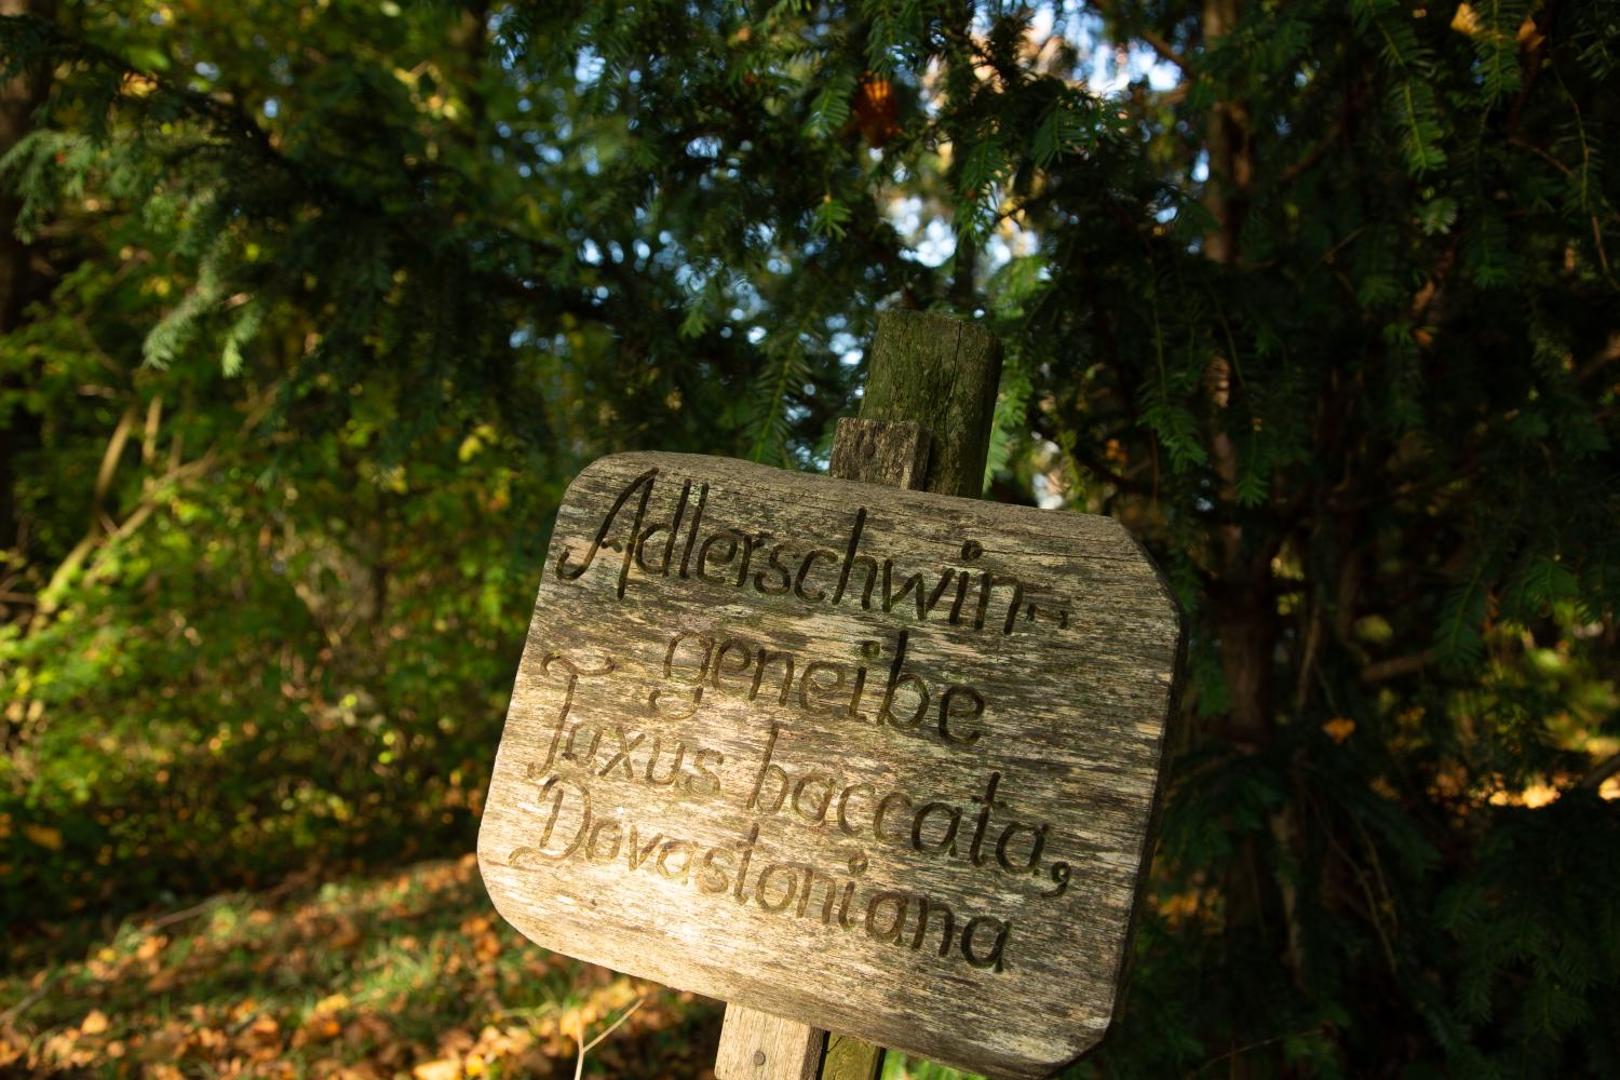 Adlerschwin-
geneibe
Taxus baccata,
Dovastoniana